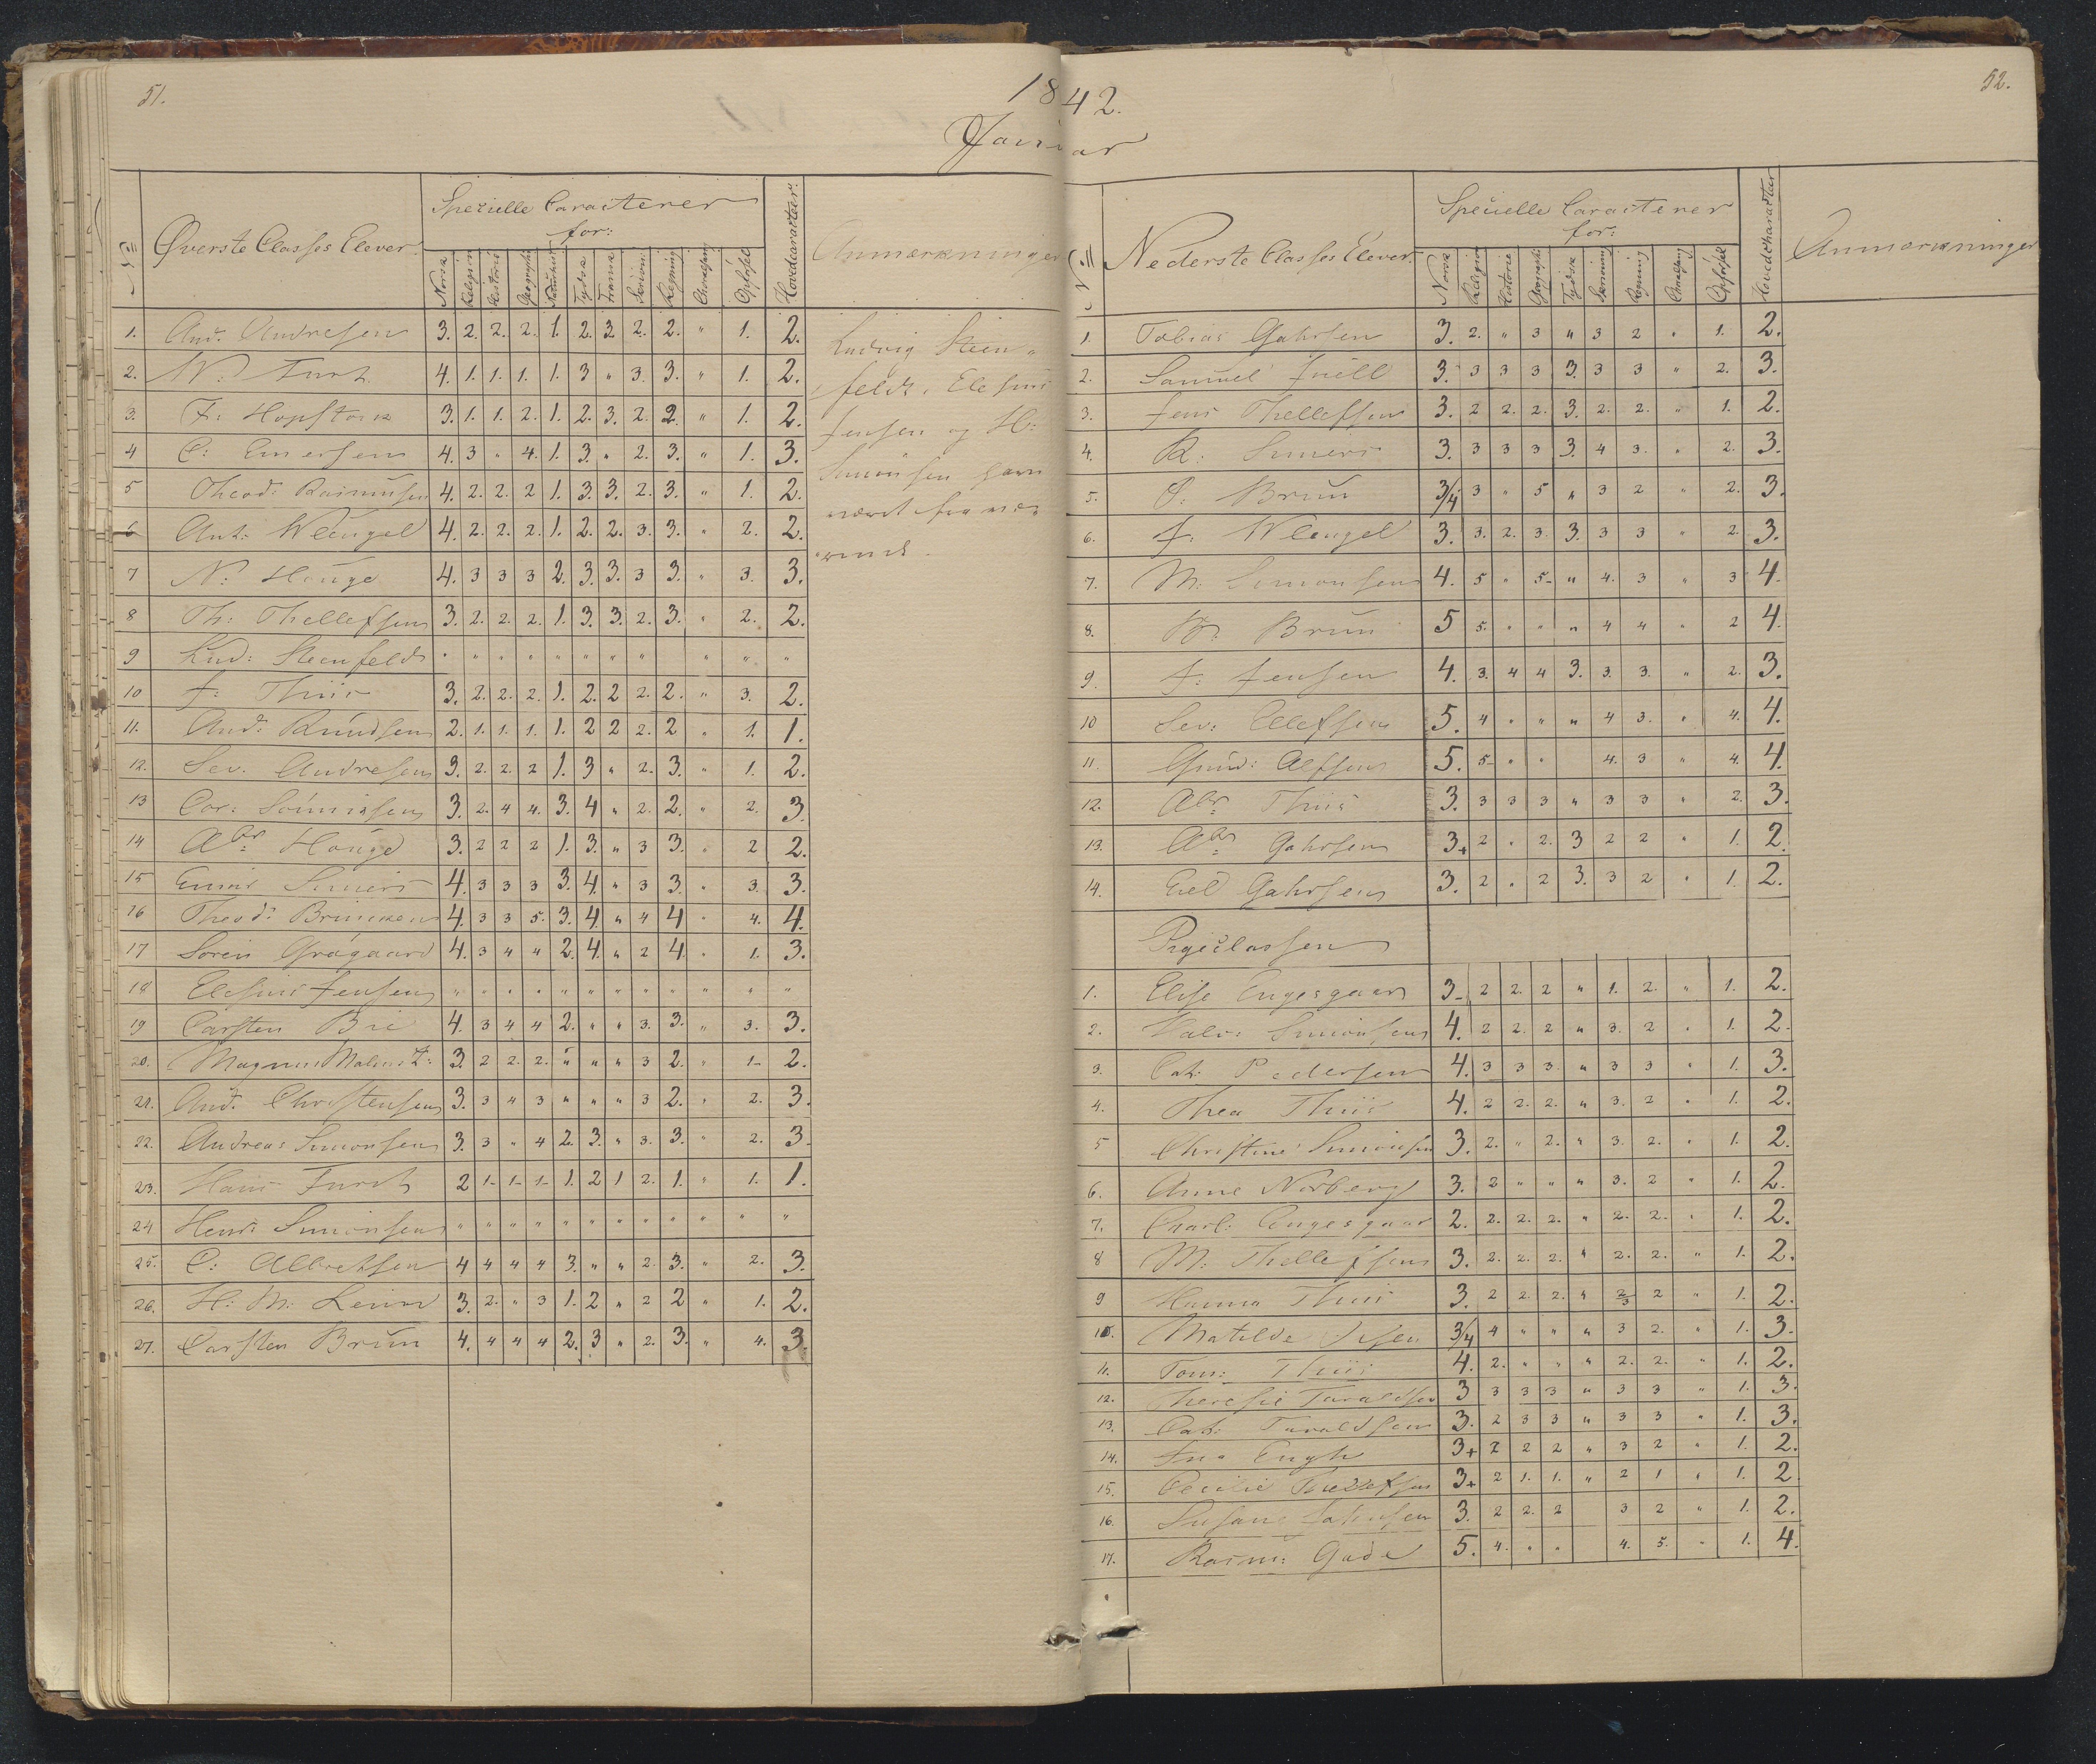 51.
52.
1842.
Januar
N:
Øverste Classes Elever.
Specielle Caracterer
for:
Norsk Religion Historie Geographi Naturhist Tydsk Fransk Skrivn. Regning Choralsang Opførsel
Hovedcaracteer.
Anmærkninger
1. And. Andresen 3. 2. 2. 2. 1. 2. 3 2. 2. " 1. 2.
2. N: Furst 4. 1. 1. 1. 1. 3 " 3. 3. " 1. 2.
3. F: Hopstock 3. 1. 1. 2. 1. 2. 3. 2. 2. " 1. 2.
4 C: Enersen 4. 3 " 4. 1. 3. " 2. 3. " 1. 3.
5 Theod: Rasmusen 4. 2. 2. 2 1. 3. 3. 2. 3. " 1. 2.
6 Ant: Wleugel 4. 2. 2. 2. 1. 2. 2. 3. 3. " 2. 2.
7 N: Houge 4. 3 3 3 2. 3. 3. 3 3. " 3. 3.
8 Th: Thellefsen 3. 2. 2. 2. 1. 3. 3. 2. 3. " 2. 2.
9 Lud: Steenfeldt " " " " " " " " " " "
10 J: Thiis 3. 2. 2. 2. 1. 2. 2 2. 2. " 3. 2.
11. And: Knudsen 2. 1. 1. 1. 1. 2 2 2. 2 " 1. 1.
12. Sev. Andresen 3. 2. 2. 2 1. 3 " 2. 3. " 1. 2.
13 Cor: Sonnichsen 3. 2. 4 4. 3. 4 " 2. 2. " 2. 3.
14 Abr Houge 3. 2 2 2 1. 3. " 3 3. " 2 2.
15 4. 3 3 3 3. 4. " 3 3. " 3. 3.
16 Theod: 4. 3 3 5. 3. 4. " 4 4 " 4. 4.
17 Søren Grågaard 4. 3 4 4 2. 4. " 2 4. " 1. 3.
18 Elesius Jensen " " " " " " " " " " " "
19 Carsten 4. 3 4 4 2. " " 3. 3. " 3. 3.
20. Magnus 3. 2 2. 2. " " " 3 2. " 1- 2.
21. And. Christensen 3. 3 4 3 " " " 3 2. " 2. 3.
22. Andreas Simonsen 3. 3 " 4 2. 3. " 3. 3. " 2. 3.
23. Hans Furst 2 1- 1- 1- 1. 2 1 2. 1. " 1. 1.
24 Henr: Simonsen " " " " " " " " " " " "
25. C: Albretsen 4 4 4 4 3. " " 2. 3. " 2. 3.
26. H: M: 3. 2. " 3 1. 2 " 2 2 " 1. 2.
27. Carsten Brun 4. 4 4 4 2. 3 " 2. 3. " 4. 3.
Ludvig Steen-
feldt, Elesius
Jensen og H:
Simonsen have
været fravæ-
rende.
N:
Nederste Classes Elever
Specielle Caracterer
for:
Norsk Religion Historie Geographi Tydsk Skrivning Regning Choralsang Opførsel
Hovedcharakteer
Anmærkninger
1. Tobias Gahrsen 3. 2. " 3 " 3 2 " 1. 2.
2. Samuel Juell 3. 3 3 3 3. 3 3 " 2. 3.
3. Jens Thellefsen 3. 2 2. 2. 3. 2. 2. " 1. 2.
4. 3. 3 3 3 3. 4 3. " 2. 3.
5. Brun 3/4 3 " 5 " 3 2 " 2. 3.
6. J: Wleugel 3. 3. 2. 3. 3. 3 3 " 2. 3.
7. M: Simonsen 4. 5 " 5- " 4. 3 " 3 4.
8. Brun 5 5. " " " 4 4 " 2 4.
9. J: Jensen 4. 3. 4 4 3. 3. 3. " 2. 3.
10 Sev: Ellefsen 5. 4 " " " 4 3. " 4. 4.
11. Gund: Alfsen 5. 5- " " 4. 3 " 4. 4.
12. Abr Thiis 3. 3 3 3 " 3 3 " 2. 3.
13. Abr Gahrsen 3+ 2 " 2. 3 2 2 " 1. 2.
14. Gahrsen 3. 2 " 2 3. 3 2 " 1. 2.
Pigeclassen
1. Elise Engesgaar 3- 2 2. 2 " 1. 2. " 1. 2.
2. Halv: Simonsen 4. 2 2. 2 " 3. 2 " 1. 2.
3. Cat: Pedersen 4. 3 3 3 " 3 3 " 1. 3.
4. Thea Thiis 4. 2 2. 2. " 3. 2 " 1. 2.
5 Christine Simonsen 3. 2. " 2. " 3. 2. " 1. 2.
6. Anne Norberg 3. 2 " " " 3. 2 " 1. 2.
7. Charl: Engesgaar 2. 2. 2. 2. " 2. 2. " 1. 2.
8 M: Thellefsen 3. 2. 2. 2. " 2. 2. " 1. 2.
9 Hanna Thiis 3. 2 2. 2. " 2/3 2 " 1. 2.
10. Matilde 3/4 4 " " " 3 2. " 1. 3.
11. Tom: Thiis 4. 2. " " " 2. 2. " 1. 2.
12. Theresie Taraldsen 3 3 3 3 " 3 3 " 1. 3.
13. Cat: Taraldsen 3. 2 3 3 " 3 3 " 1. 3.
14. Ina Engh 3+ 2 2 2 " 3 2 " 1. 2.
15. Cecilie Thellefsen 3+ 2 1. 1. " 2 1 " 1. 2
16. Susane 3. 2 2. 2 3 2 " 1. 2.
17. Rasm: Gude 5. 4. " " 4. 5. " 1. 4.